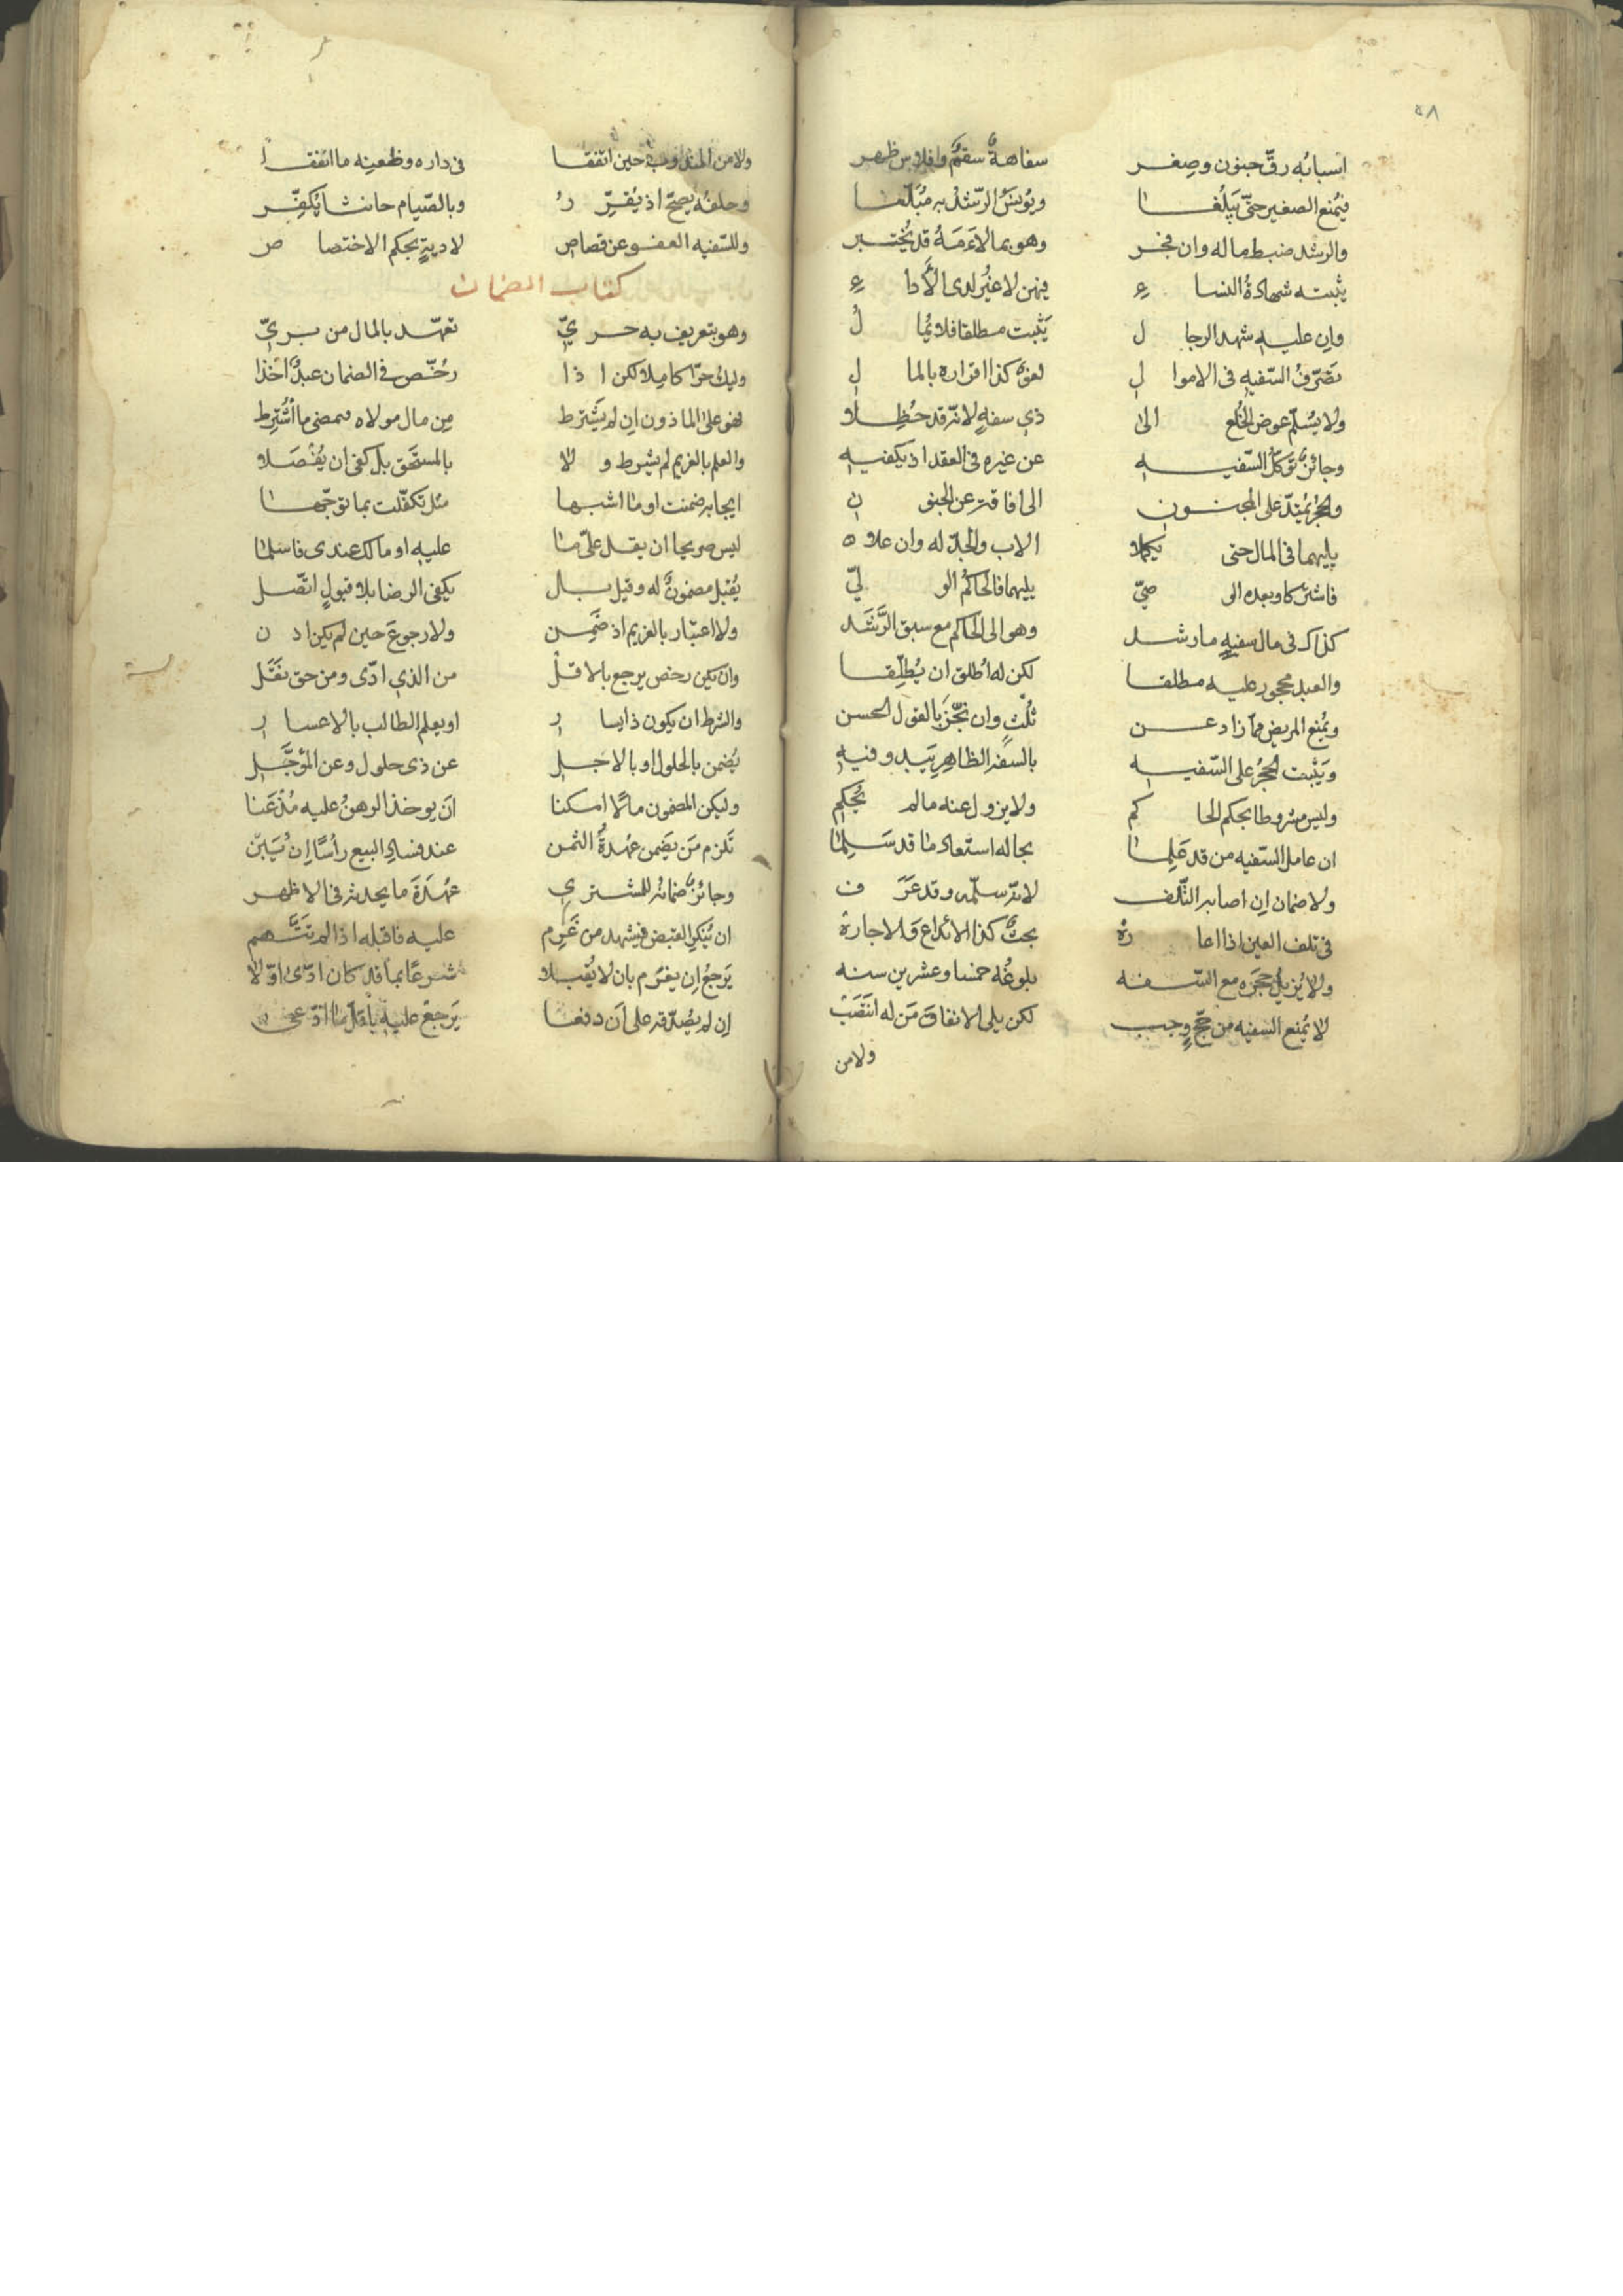 ٤٨
اسبابُه رقّ جنون وصغر سفاهةٌ سقمٌ وافلاس ظهر
فيُمنع الصغير حتّى يَبلُغا ويُونَسُ الرّشدُ به مُبَلَّغا
والرشد ضبط ماله وان فجر وهو بما لاءَمَهُ قد يُختبر
يثبته شهادةُ النساءِ فيهن لا غيرُ لدى الأداءِ
وان عليه شهد الرجالُ يَثبت مطلقا فلا يُمالُ
تصَرّفُ السّفيه فى الاموالِ لغوٌ كذا اقراره بالمالِ
ولا يُسلّم عوض الخُلع الى ذى سفهٍ لانّه قد حُظِلا
وجائزٌ توكّلُ السّفيهِ عن غيره فى العقد اذ يكفيهِ
والحجرُ يمتدّ على المجنونِ الى افاقته عن الجنونِ
يليهما فى المال حتى يكملا الاب والجدّ له وان علا
فاشتركا وبعده الى صىّ يليهما فالحاكمُ الولىّ
كذاك فى مال سفيهٍ ما رشد وهو الى الحاكم مع سبق الرَّشَد
والعبد محجور عليه مطلقا لكن له اُطلق ان يُطلِّقا
ويُمنع المريض مما زاد عن ثُلْثٍ وان نَجّز بالقول الحسن
ويَثبت الحجرُ على السّفيهِ بالسفه الظاهر يَبدو فيهِ
وليس مشروطا بحكم الحاكم ولا يزول عنه مالم يُحكمِ
ان عامل السّفيه من قد عَلِما بحاله استعاد ما قد سَلِما
ولا ضمان ان اصابه التّلف لانّه سلّمه وقد عَرَف
فى تلف العين اذا اعارهْ بحثٌ كذا الايداع والاجارهْ
ولا يُزيلُ حجرَه مع السّفه بلوغُه خمسا وعشرين سنه
لا يُمنع السفيه من حجٍّ وجب لكن يلى الانفاق مَن له انتَصَبْ
ولا من
ولا من المندوب حين اتّفقا فى داره وظعنِه ما انفقا
وحلفُه يصحّ اذ يُقَرِّرُ وبالصّيام حانثا يُكفِّر
وللسّفيه العفو عن قصاصِ لا ديةٍ بحكم الاختصاص
كتاب الضمان
وهو بتعريف به حرىّ تعهّد بالمال من برىّ
وليك حرّا كاملا لكن اذا رُخّص فى الضمان عبدٌ اُخذا
فهو على الماذون ان لم يَشترط مِن مال مولاه فيمضى ما اشتُرِط
والعلم بالغريم لم يُشرط ولا بالمستحَق بل كفى ان يُفْصَلا
ايجابه ضمنت او ما اشبها مثل تكفّلت بما توجّها
ليس صريحا ان يقل علىّ ما عليه او مالك عندى فاعلما
يُقبَل مضمونٌ له وقيل بل يكفى الرضا بلا قبولٍ اتّصل
ولا اعتبار بالغريم اذ ضَمِن ولا رجوعَ حين لم يكن اذن
وان يكن رخص يرجع بالاقلّ من الذى ادّى ومن حق نقَل
والشرط ان يكون ذا ايسارِ او يعلم الطالب بالاعسارِ
يُضمن بالحلول او بالاجلِ عن ذى حلول وعن المؤجَّلِ
وليكن المضمون مالا امكنا ان يوخذ الرهنُ عليه مُذعَنا
تَلزم مَن يَضمن عُهدةُ الثمن عند فساد البيع رأسًا اِن يَبِن
وجائزٌ ضمانه للمشترى عُهدَةَ ما يحدثه فى الاظهر
ان يُنكرِ القبض فيشهد من غَرِم عليه فاقبله اذا لم يُتَّهم
يَرجعُ اِن يغرَم بان لا يُقبلا شرعًا بما قد كان ادّى اوّلا
اِن لم يُصدّقه على اَن دفعا يَرجعْ عليه باقل ما ادّعى